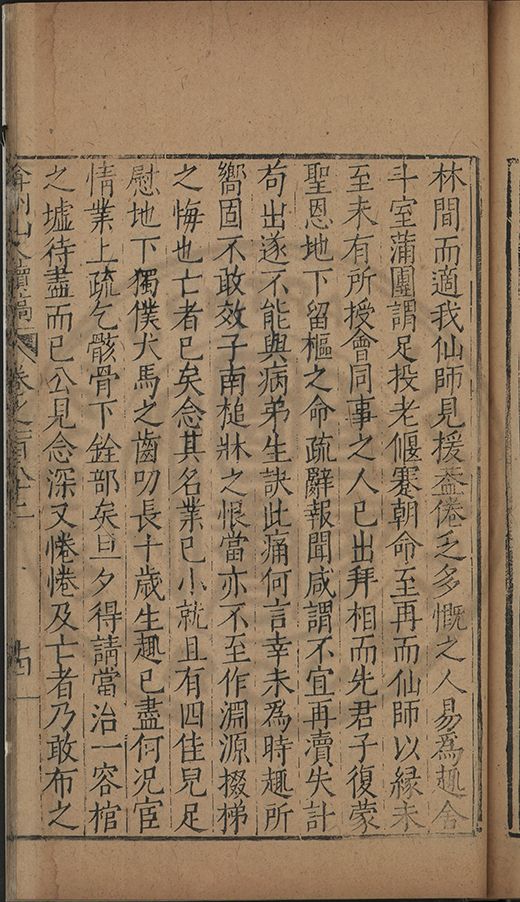 林間而適我仙師見援益倦乏多慨之人易為趣舍
斗室蒲團謂足投老偃蹇朝命至再而仙師以緣未
至未有所授會同事之人已出拜相而先君子復蒙
聖恩地下留樞之命疏辭報聞咸謂不宜再瀆失計
茍出遂不能與病弟生訣此痛何言幸未為時趣所
嚮固不敢效子南槌牀之恨當亦不至作淵源掇梯
之悔也亡者已矣念其名業已小就且有四佳兒足
慰地下獨僕犬馬之齒叨長十歲生趣已盡何況宦
情業上疏乞骸骨下銓部矣旦夕得請當治一容棺
之墟待盡而已公見念深又惓惓及亡者乃敢布之
弇州山人續稿 卷之一百八十二 十四